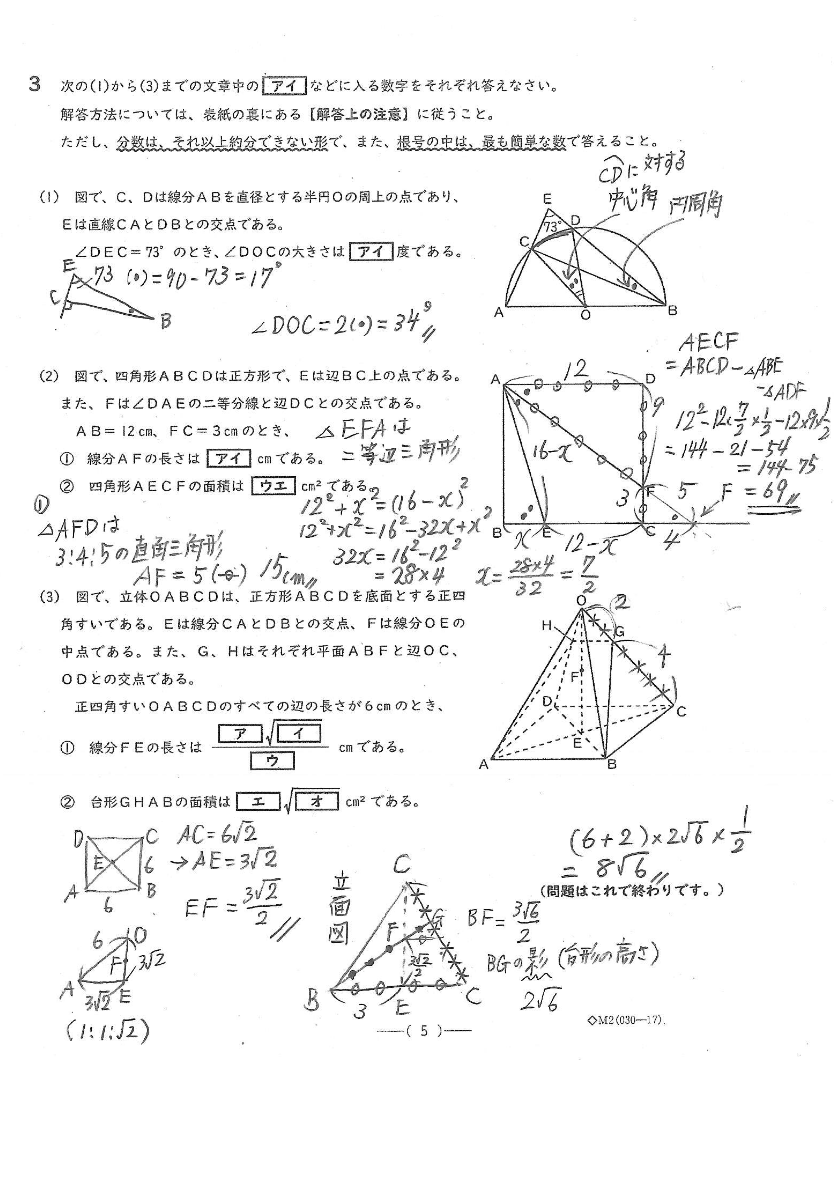 3 次の(1)から(3)までの文章中の アイ などに入る数字をそれぞれ答えなさい。
解答方法については、表紙の裏にある【解答上の注意】に従うこと。
ただし、分数は、それ以上約分できない形で、また、根号の中は、最も簡単な数で答えること。
(1) 図で、C、Dは線分ABを直径とする半円Oの周上の点であり、
Eは直線CAとDBとの交点である。
∠DEC=73°のとき、∠DOCの大きさは アイ 度である。
E 73 (•)=90-73=17°
C
B
∠DOC=2(•)=34°〃
CDに対する
中心角 円周角
E
73° D
C
A O B
(2) 図で、四角形ABCDは正方形で、Eは辺BC上の点である。
また、Fは∠DAEの二等分線と辺DCとの交点である。
AB=12cm、FC=3cmのとき、 △EFAは
① 線分AFの長さは アイ cmである。 二等辺三角形
② 四角形AECFの面積は ウエ cm²である。
① 12²+x²=(16-x)²
△AFDは 12²+x²=16²-32x+x²
3:4:5の直角三角形 32x=16²-12²
AF=5(○) 15cm〃 =28×4 x=28×4/32=7/2
A 12 D
9
16-x
3 F 5 F
B x E 12-x C 4
AECF
=ABCD-△ABE
-△ADF
12²-12×7/2×1/2-12×9×1/2
=144-21-54
=144-75
=69〃
(3) 図で、立体OABCDは、正方形ABCDを底面とする正四
角すいである。Eは線分CAとDBとの交点、Fは線分OEの
中点である。また、G、Hはそれぞれ平面ABFと辺OC、
ODとの交点である。
正四角すいOABCDのすべての辺の長さが6cmのとき、
① 線分FEの長さは ア√イ/ウ cmである。
② 台形GHABの面積は エ√オ cm²である。
O 2
H G
4
F
D C
E
A B
D C AC=6√2
E 6 →AE=3√2
A B
6 EF=3√2/2〃
6 O
F 3√2
A
3√2 E
(1:1:√2)
立面図
C
F G
3√2/2
B 3 E C
BF=3√6/2
BGの影(台形の高さ)
2√6
(6+2)×2√6×1/2
=8√6〃
(問題はこれで終わりです。)
—( 5 )—
◇M2(030—17)